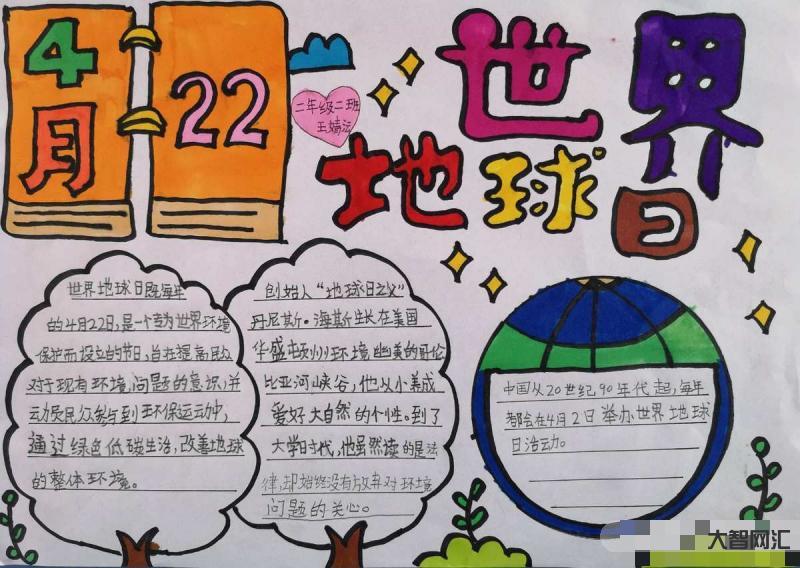 4月
22
二年级二班
王婧
世界
地球
日
世界地球日既每年
的4月22日,是一个专为世界环境
保护而设立的节日,旨在提高民众
对于现有环境问题的意识,并
动员民众参与到环保运动中,
通过绿色低碳生活,改善地球
的整体环境。
创始人“地球日之父”
丹尼斯·海斯生长在美国
华盛顿州环境幽美的哥伦
比亚河峡谷,他从小养成
爱好大自然的个性。到了
大学时代,他虽然读的是法
律,却始终没有放弃对环境
问题的关心。
中国从20世纪90年代起,每年
都会在4月2日举办世界地球
日活动。
大智网汇